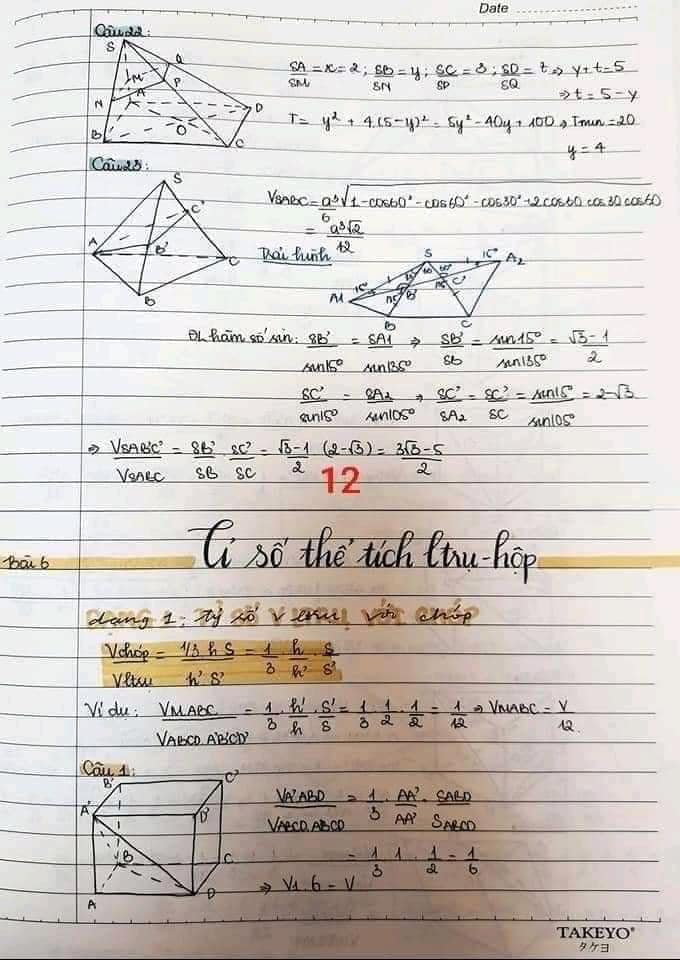 Date
Câu 22:
S
M
Q
P
N
A
D
B
O
C
SA/SM = x = 2; SB/SN = y; SC/SP = 3; SD/SQ = t ⇒ y + t = 5
⇒ t = 5 - y
T = y² + 4.(5-y)² = 5y² - 40y + 100 ⇒ Tmin = 20
y = 4
Câu 23:
S
C'
A
B'
C
B
VSABC = a³/6 √1 - cos60² - cos60² - cos30² + 2cos60 cos30 cos60
= a³√2/12
Trải hình
S
15°
A2
15°
A1
B'
C'
B
C
ĐL hàm số sin: SB'/sin15° = SA1/sin135° ⇒ SB'/SB = sin15°/sin135° = √3-1/2
SC'/sin15° = SA2/sin105° ⇒ SC'/SA2 = SC'/SC = sin15°/sin105° = 2-√3
⇒ VSAB'C'/VSABC = SB'/SB . SC'/SC = √3-1/2 (2-√3) = 3√3-5/2
12
Bài 6
Tỉ số thể tích ltrụ-hộp
dạng 1: tỷ số V ltrụ với chóp
Vchóp/Vltrụ = 1/3 h S/h' S' = 1/3 . h/h' . S/S'
Ví dụ: VMABC/VABCD.A'B'C'D' = 1/3 . h'/h . S'/S = 1/3 . 1/2 . 1/2 = 1/12 ⇒ VMABC = V/12
Câu 1:
B'
C'
A'
D'
B
C
A
D
VA'ABD/VABCD.ABCD = 1/3 . AA'/AA' . SABD/SABCD
= 1/3 . 1 . 1/2 = 1/6
⇒ V1.6 = V
TAKEYO®
タケヨ